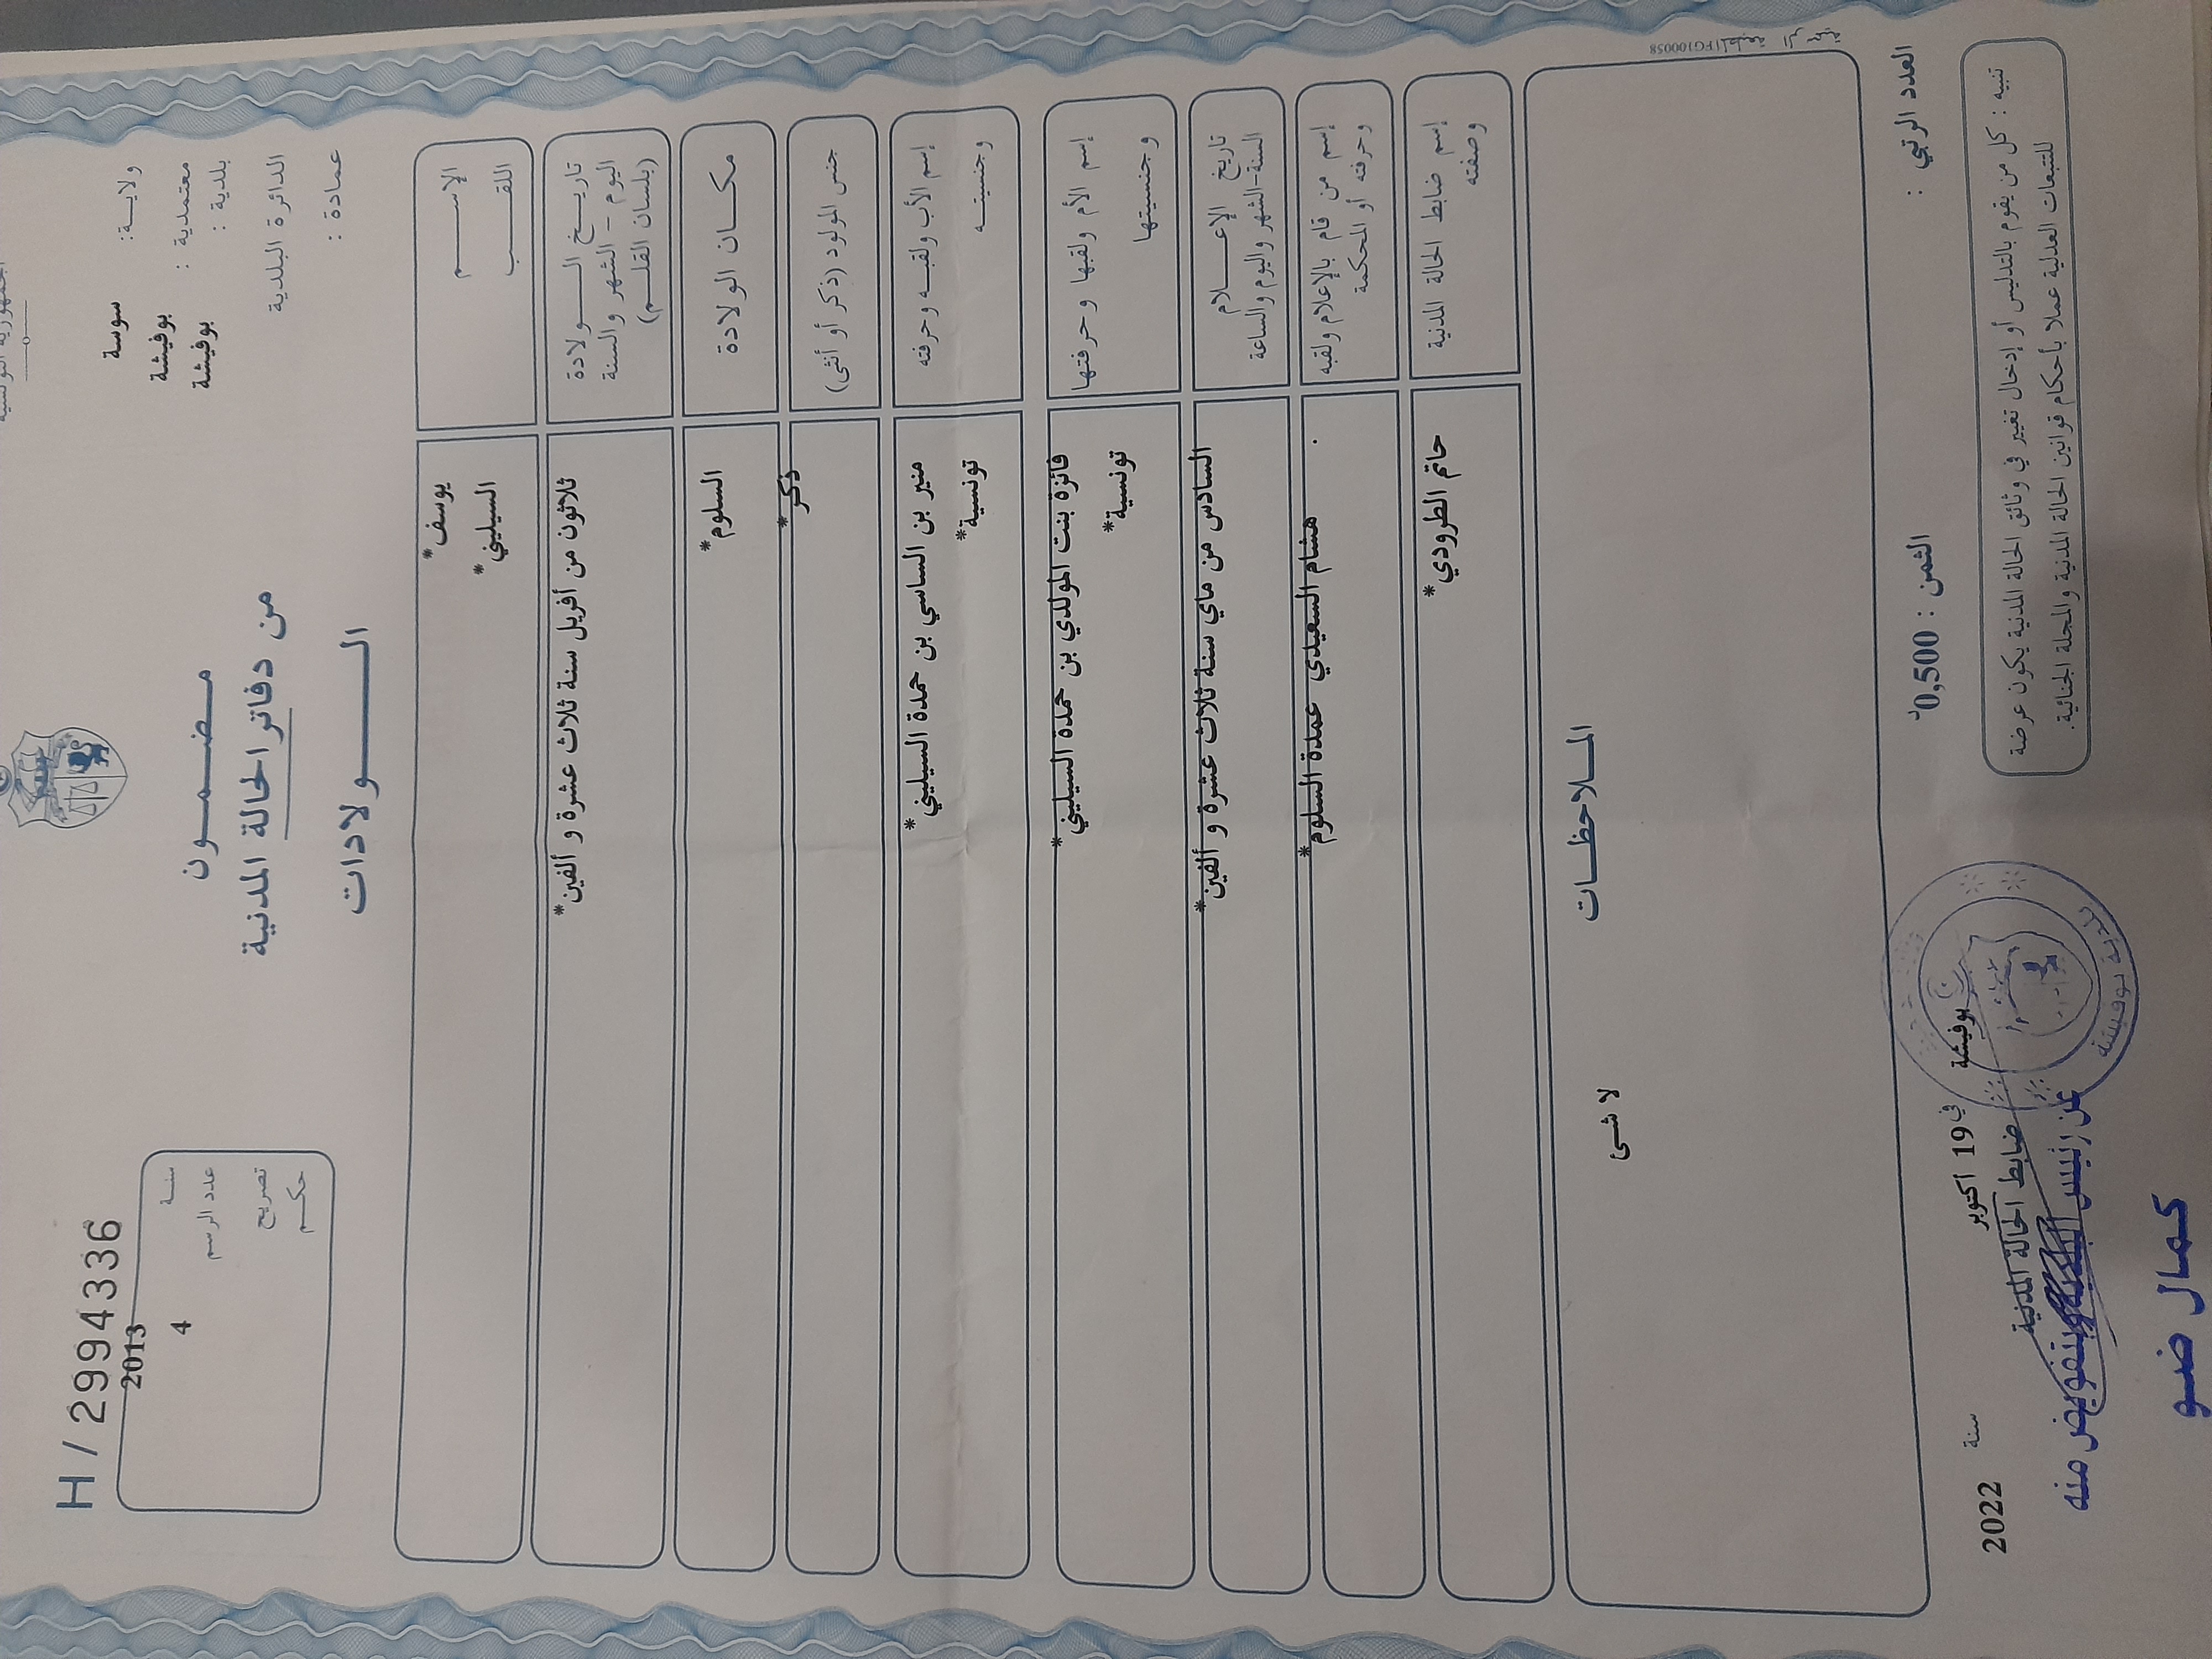 الجمهورية التونسية
H / 2994336
ولايـة: سوسة
معتمدية : بوفيشة
بلدية : بوفيشة
الدائرة البلدية
عمادة :
مـضـمـــون
من دفاتر الحالة المدنية
الـــولادات
سنـة 2013
عدد الرسم 4
تصريح
حكــم
الإســـــم يوسف*
اللقـــب السيليني*
تاريــخ الــــولادة
اليوم – الشهر والسنة
(بلسان القلــم)
ثلاثون من أفريل سنة ثلاث عشرة و ألفين*
مكــان الولادة السلوم*
جنس المولود (ذكر أو أنثى) ذكر*
إسم الأب ولقبـه وحرفته منير بن الساسي بن حمدة السيليني*
وجنسيتـه تونسية*
إسم الأم ولقبها وحرفتها فائزة بنت المولدي بن حمدة السيليني*
وجنسيتها تونسية*
تاريخ الإعــــلام
السنة-الشهر واليوم والساعة
السادس من ماي سنة ثلاث عشرة و ألفين*
إسم من قام بالإعلام ولقبه
وحرفته أو المحكمة
هشام السعيدي عمدة السلوم*
إسم ضابط الحالة المدنية
وصفته
حاتم الطرودي*
المــلاحظــات
لا شئ
FG100058
العدد الرتبي :
الثمن : 0,500د
بوفيشة في 19 اكتوبر سنة 2022
ضابط الحالة المدنية
عن رئيس البلدية وبتفويض منه
كمال ضو
بلدية بوفيشة
تنبيه : كل من يقوم بالتدليس أو إدخال تغيير في وثائق الحالة المدنية يكون عرضة
للتتبعات العدلية عملا بأحكام قوانين الحالة المدنية والمجلة الجنائية.